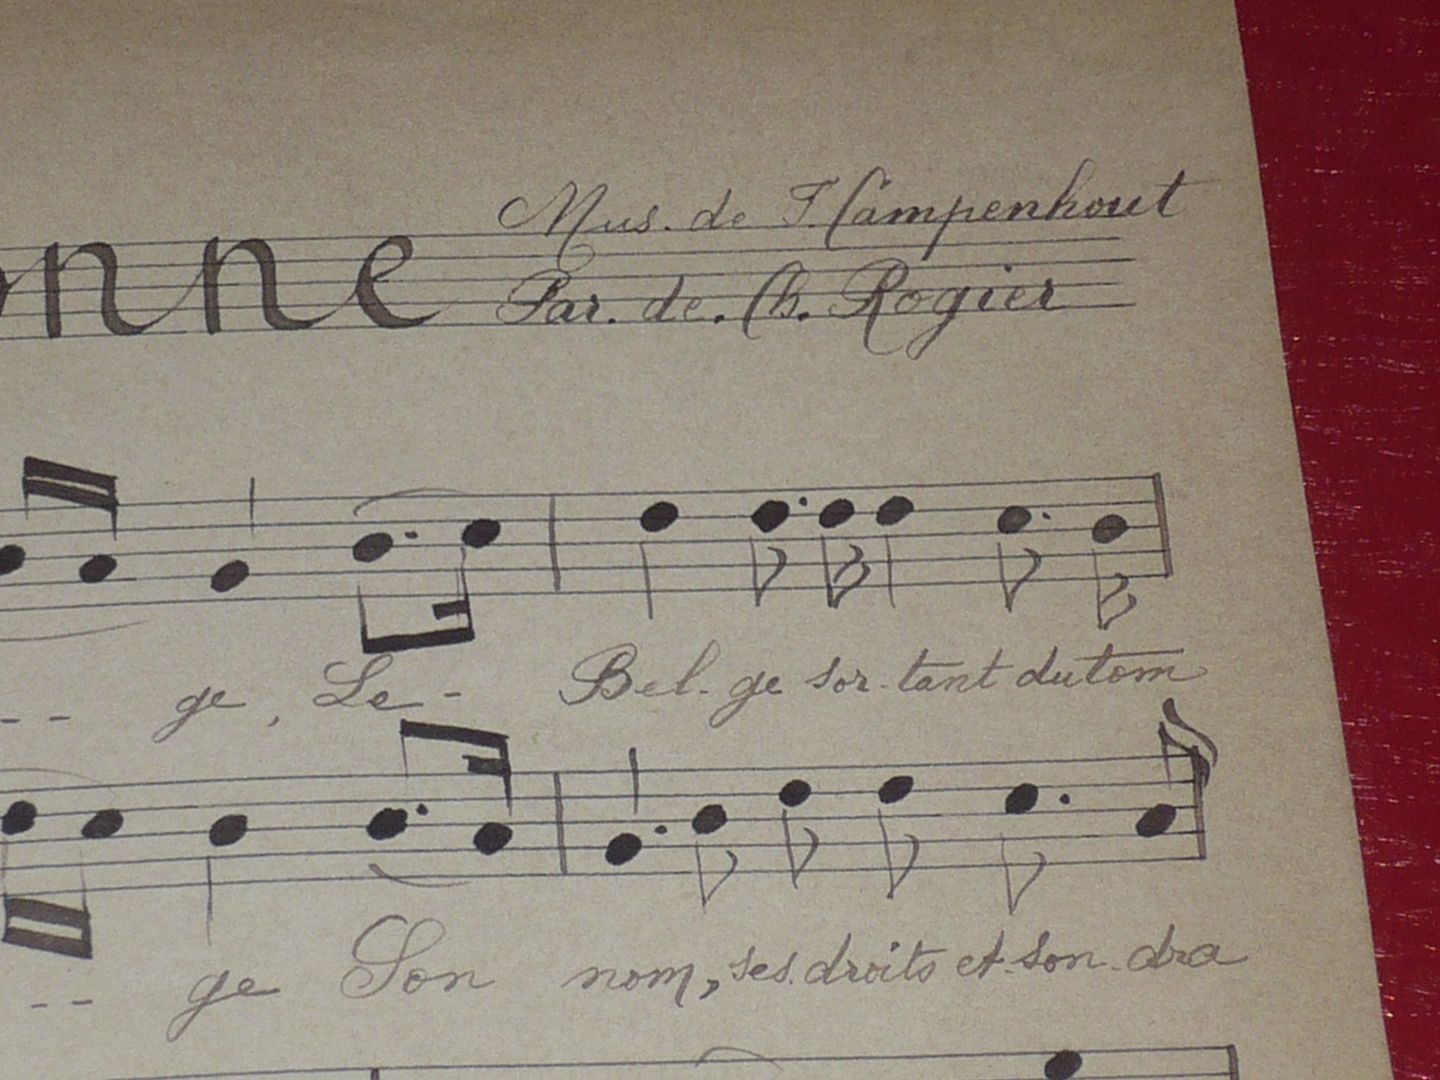 onne
Mus. de F. Campenhout
Par. de. Ch. Rogier
-- ge, Le- Bel-ge sor-tant du tom
-- ge Son nom, ses droits et son dra